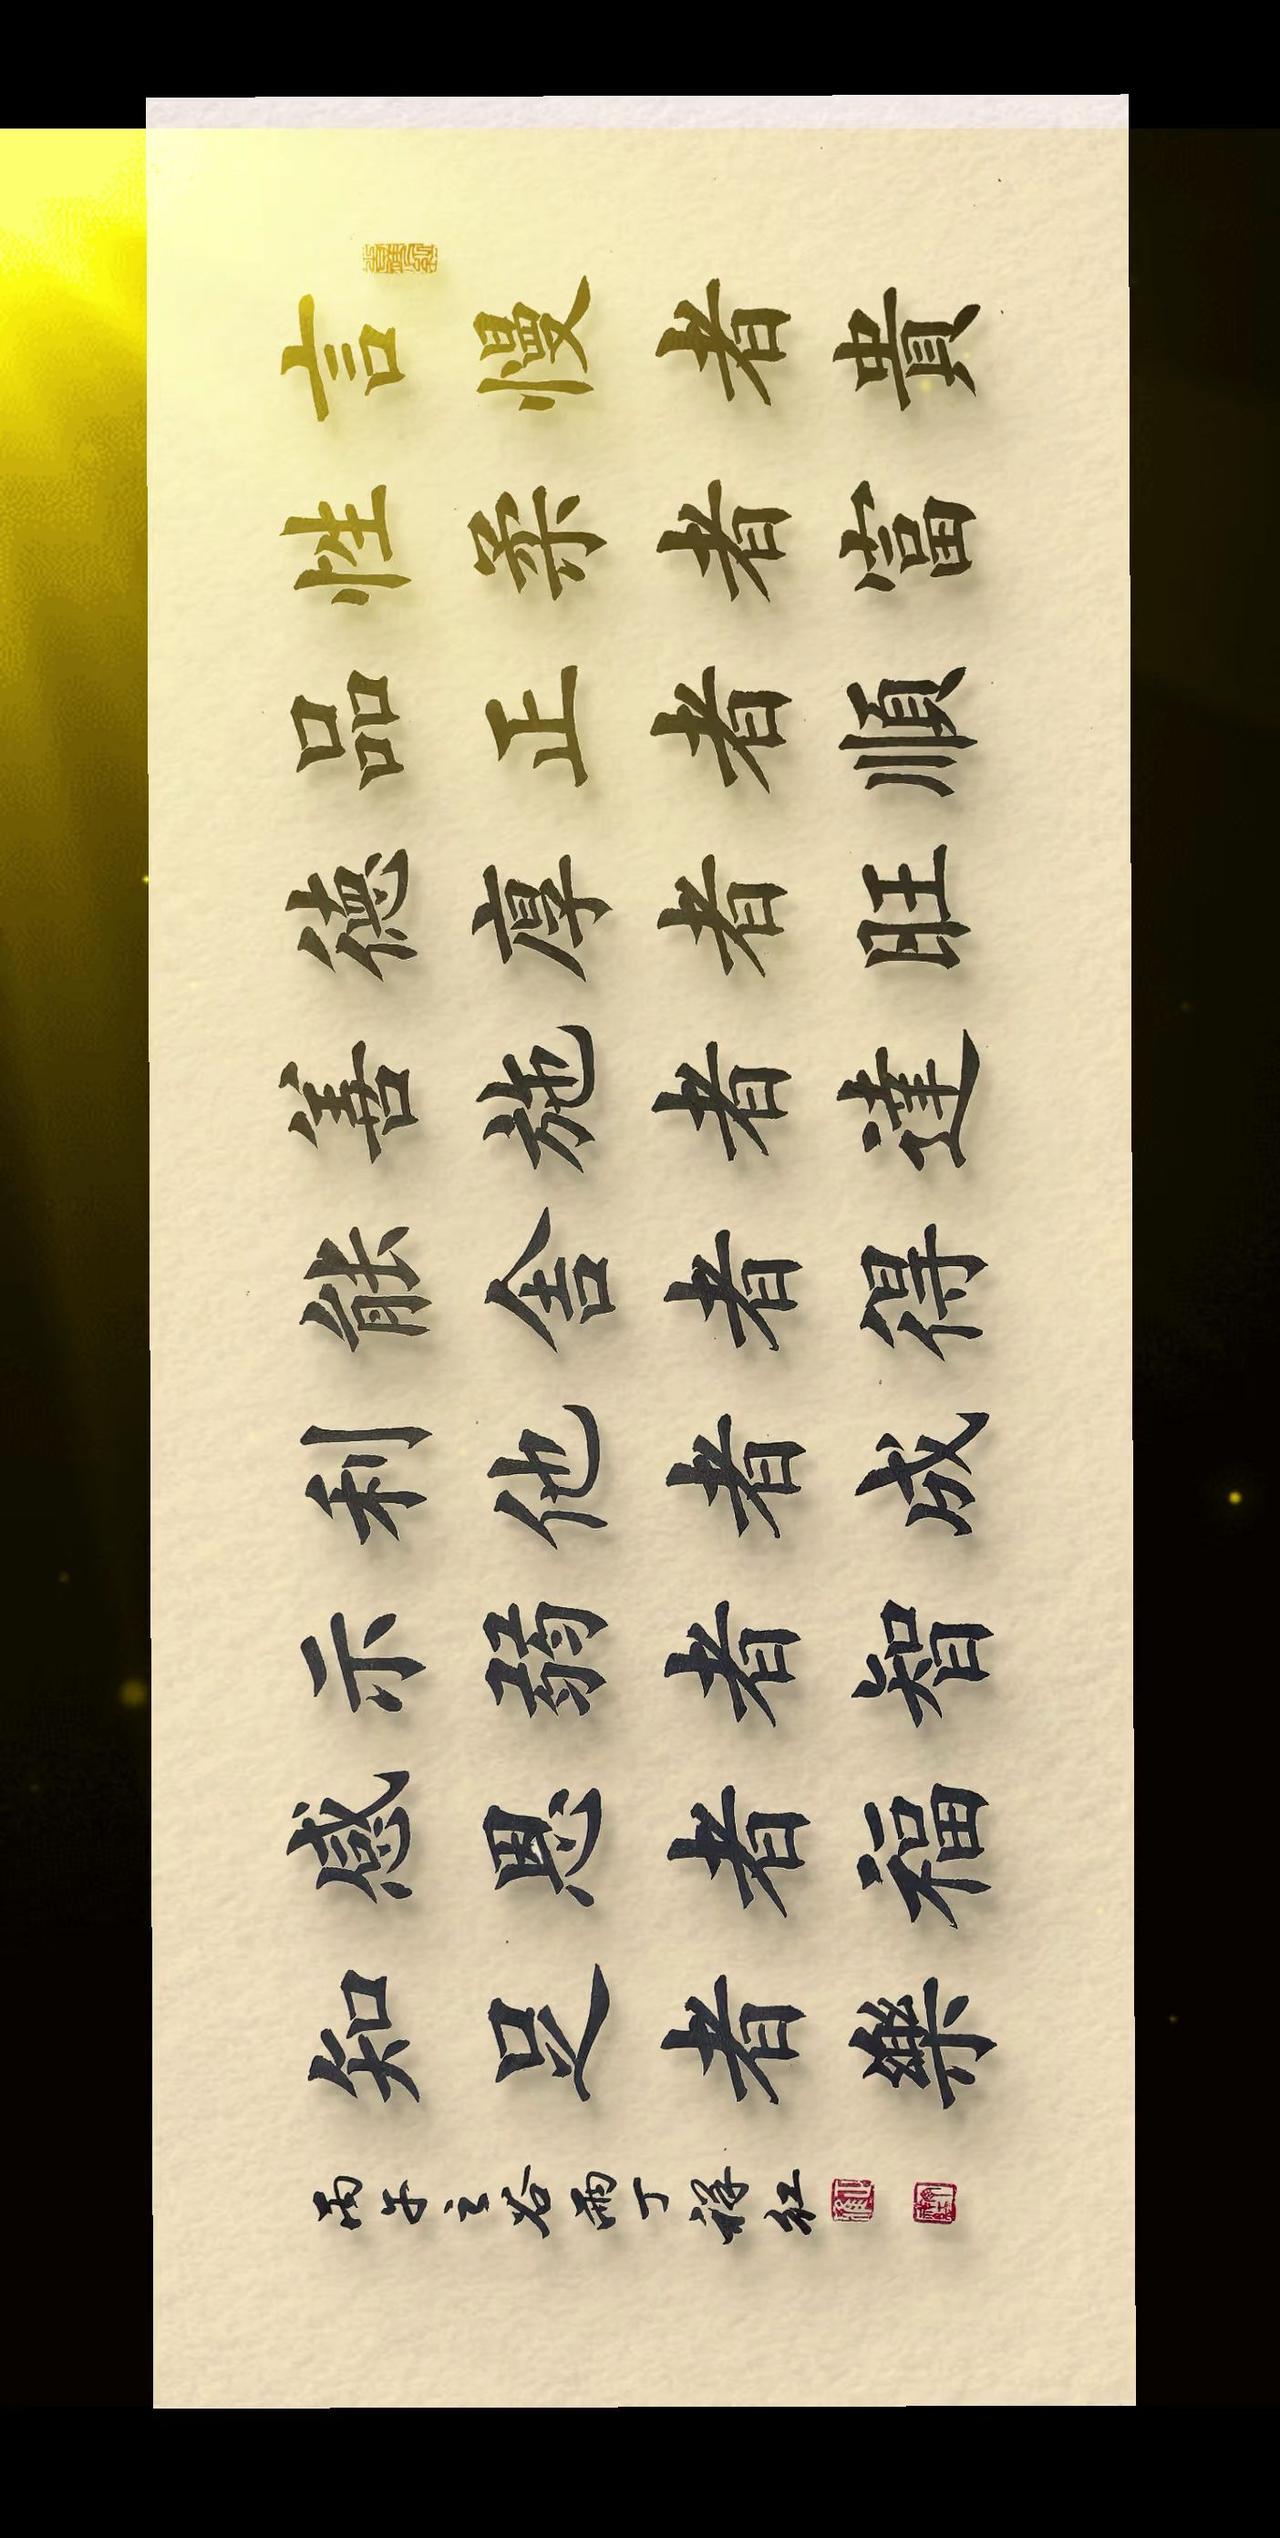 言慢者貴
性柔者富
品正者順
德厚者旺
善施者達
能舍者得
利他者成
示弱者智
感恩者福
知足者樂
丙午之谷雨丁红